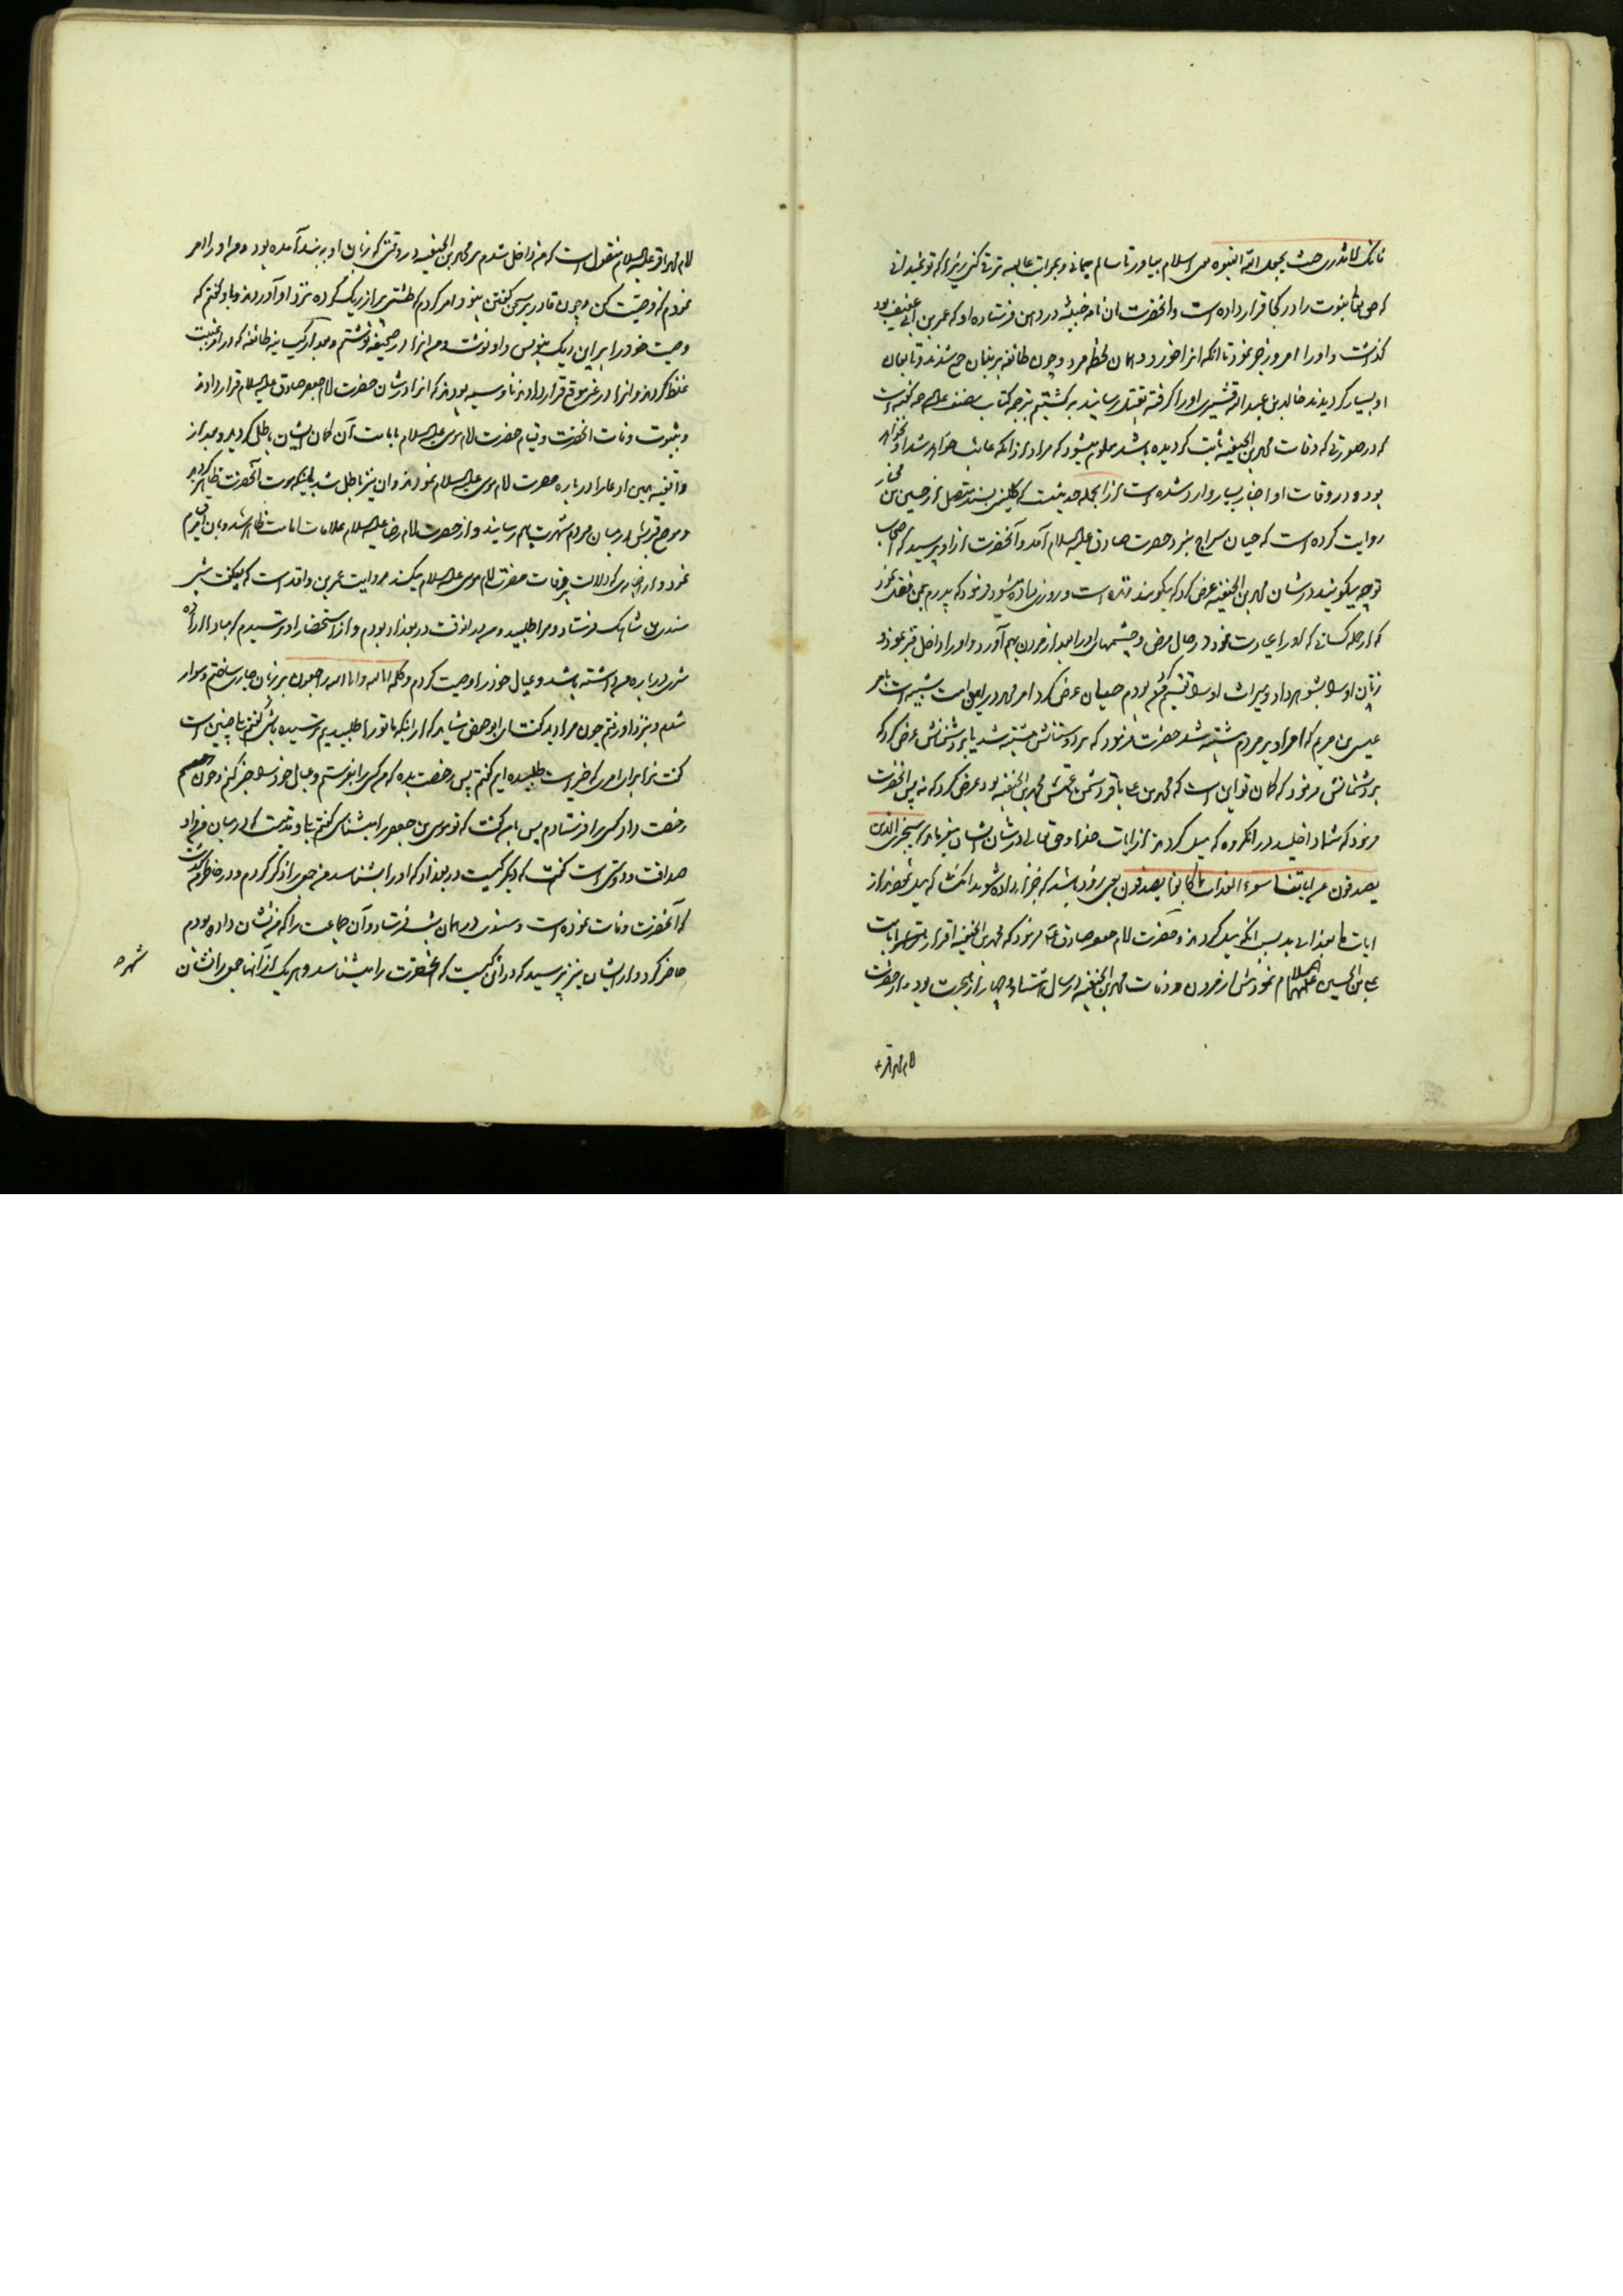 فانک لا تدری حیث یجعل الله النبوه پس اسلام بیاور تا سالم بمانی و بمراتب عالیه ترقی کنی زیرا که تو نمیدانی
که حق تعالی نبوت را در کجا قرار داده است و آنحضرت آن نامه خبیثه در دهن فرستاده او که عمر بن ابی عفیف بود
گذاشت و او را امر و زجر نمود تا آنکه آنرا خورد و در همان لحظه مرد و چون طائفه بر بنان جمع شدند و تابعان
او بسیار گردیدند خالد بن عبدالله قشیری او را گرفته بقتل رسانید برگشتیم بترجمه کتاب مصنف علیه الرحمه گفته است
که در صورتی که وفات محمد بن الحنفیه ثابت گردیده باشد معلوم میشود که مراد از آنکه غائب خواهد شد او نخواهد
بود و در وفات او اخبار بسیار وارد شده است از آنجمله حدیثیست که کلینی بسند متصل از حسین بن مختار
روایت کرده است که حیان سراج بنزد حضرت صادق علیه السلام آمد و آنحضرت از او پرسید که اصحاب
تو چه میگویند در شان محمد بن الحنفیه عرض کرد که میگویند زنده است و روزی داده میشود فرمود که پدرم بمن نقل نمود
که از جمله کسانی که او را عیادت نمود در حال مرض و چشمهای او را بعد از مردن بهم آورد و او را داخل قبر نمود و
زنان او را بشوهر داد و میراث او را تقسیم کرد بودم حیان عرض کرد امر محمد در این امت شبیه است بامر
عیسی بن مریم که امر او بر مردم مشتبه شد حضرت فرمود که بر دوستانش مشتبه شد یا بر دشمنانش عرض کرد که
بر دشمنانش فرمود که گمان تو این است که محمد بن علی باقر دشمن عمش محمد بن الحنفیه بود عرض کرد که نه پس آنحضرت
فرمود که شما داخلید در آنگروه که میل کردند از آیات خدا و حق تعالی در شان ایشان میفرماید سیجزی الذین
یصدفون عن ایاتنا سوء العذاب بما کانوا یصدفون یعنی زود باشد که جزا داده شوند آنکسان که میل نمودند از
ایات ما بعذاب بد بسبب آنکه میل کردند و حضرت امام جعفر صادق ع فرمود که محمد بن الحنفیه اقرار نمود بامامت
علی بن الحسین علیهما السلام نمود پیش از مردن و وفات محمد بن الحنفیه در سال هشتاد و چهار از هجرت بود و از حضرت
امام محمد باقر ع
امام محمد باقر علیه السلام منقول است که من داخل شدم بر محمد بن الحنفیه در وقتی که زبان او به بند آمده بود و من او را امر
نمودم که وصیت کن و چون قادر بر سخن گفتن نبود امر کردم که طشتی پر از ریگ کرده نزد او آوردند و باو گفتم که
وصیت خود را بر این ریگ بنویس و او نوشت و من آنرا در صحیفه نوشتم و بعد از کیسانیه طائفه که در امر غیبت
غلط کردند و آنرا در غیر موقع قرار دادند ناووسیه بودند که آنرا در شان حضرت امام جعفر صادق علیه السلام قرار دادند
و بثبوت وفات آنحضرت و قیام حضرت امام موسی علیه السلام بامامت آن گمان ایشان باطل گردید و بعد از
واقفیه همین ادعا را در باره حضرت امام موسی علیه السلام نمودند و آن نیز باطل شد باینکه موت آنحضرت ظاهر گردید
و موضع قبرش در میان مردم شهرت بهم رسانید و از حضرت امام رضا علیه السلام علامات امامت ظاهر شد و بآن قیام
نمود و از اخباری که دلالت بر وفات حضرت امام موسی علیه السلام میکند روایت عمر بن واقد است که میگفت شبی
سندی بن شاهک فرستاد و مرا طلبید و من در آنوقت در بغداد بودم و از استحضار او ترسیدم که مبادا اراده
شری در باره من داشته باشد و عیال خود را وصیت کردم و کلمه انا لله و انا الیه راجعون بر زبان جاری ساختم و سوار
شدم و بنزد او رفتم چون مرا دید گفت ای ابو حفص شاید که از اینکه ما تو را طلبیدیم ترسیده باشی گفتم بلی چنین است
گفت ترا برای امری که خیر است طلبیده ایم گفتم پس رخصت بده که من کسی را بفرستم و عیال خود را خبر کنم و چون
رخصت داد کسی را فرستادم پس بامن گفت که تو موسی بن جعفر را میشناسی گفتم بلی و مدتیست که در میان من و او
صداقت و دوستی است گفت که دیگر کیست در بغداد که او را بشناسد من جمعی را ذکر کردم و در خاطرم گذشت
که آنحضرت وفات نموده است و سندی در همان شب فرستاد و آن جماعت را که من نشان داده بودم
حاضر کرد و از ایشان نیز پرسید که در آن کیست که آنحضرت را میشناسد و هر یک از آنها جمعی را نشان
شهره